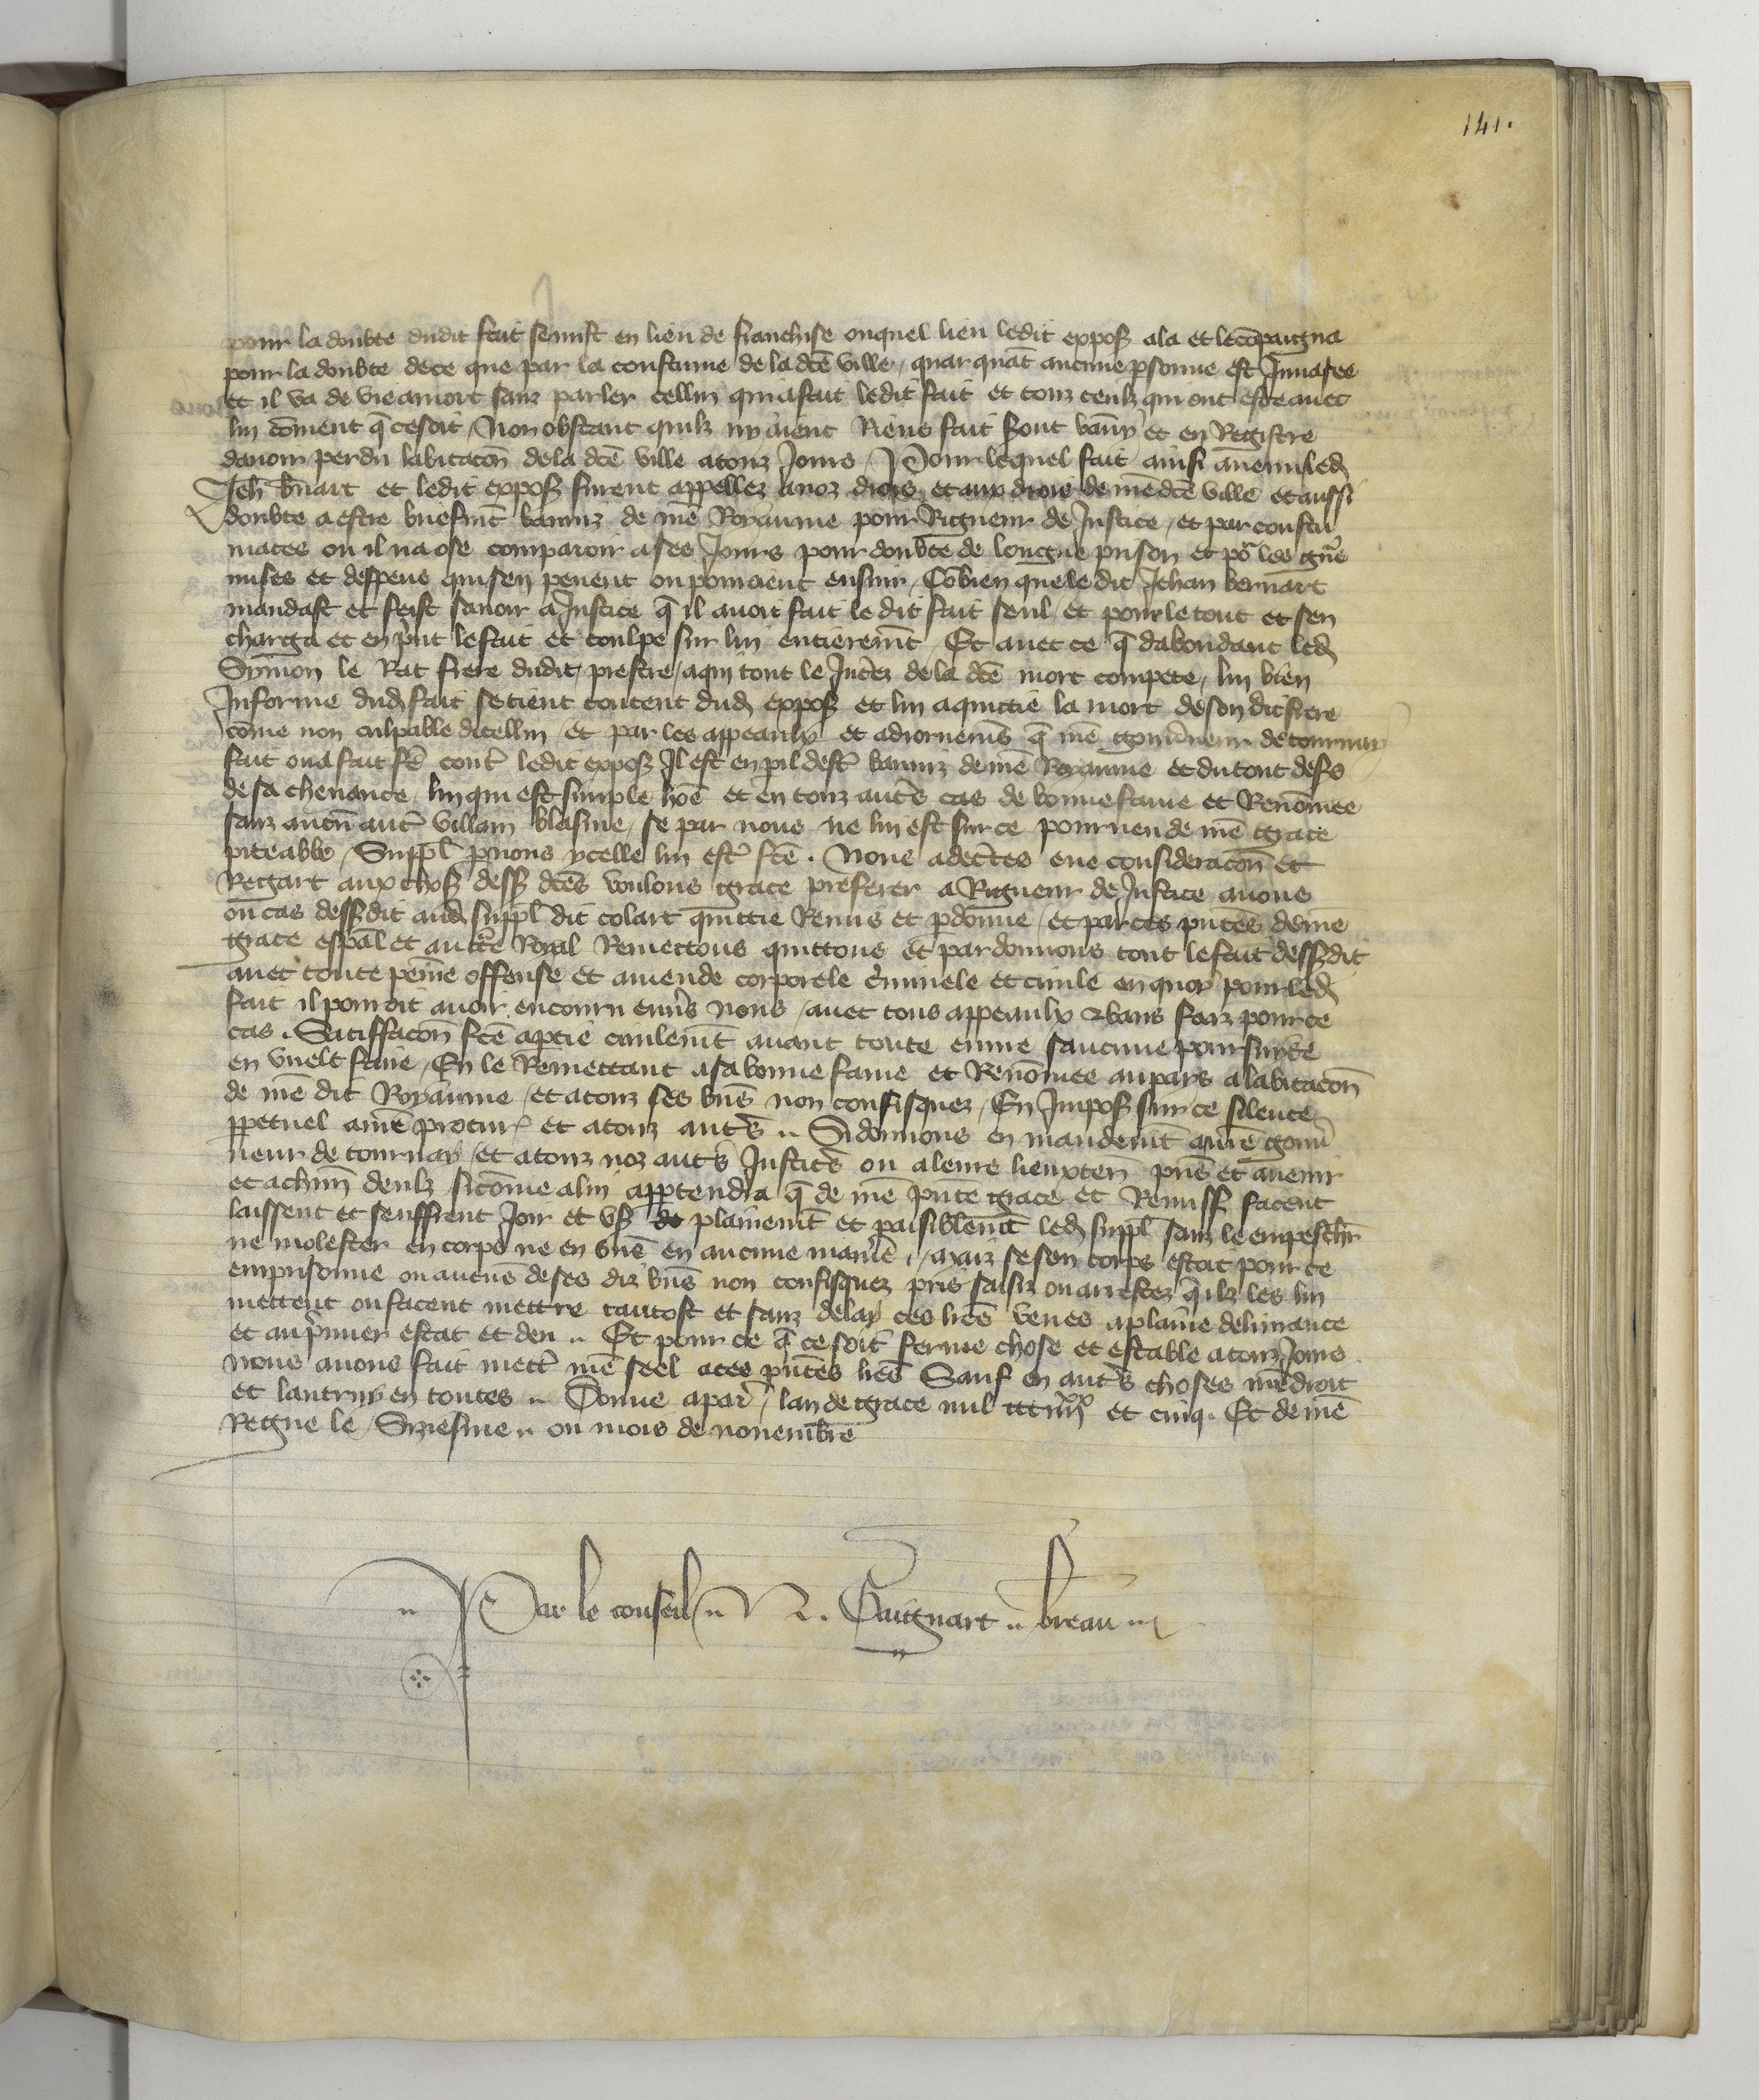 141.
pour la doubte dudit fait se mist en lieu de franchise ouquel lieu ledit expos̃ ala et le cõpaigna
pour la doubte de ce que par la coustume de la dc̃e ville, quar quãt aucune p̃sonne est Jnuasee
et il va de vie a mort sanz parler cellui qui a fait ledit fait et touz ceulx qui ont este auec
lui cõment q̃ ce soit, Non obstant quilz ny aient Riens fait Sont bãny et en Registre
dauoir perdu labitacõn de la dc̃e ville a touz Jours, Pour lequel fait ainsi auenu led̃
Jeh̃ b̃nart et ledit expos̃ furent appellez a noz drois et aux drois de ñre dc̃e ville et aussi
doubte a estre briefmẽt banniz de ñre Royaume pour Rigueur de Justice, et par coustu
maces ou il na ose comparoir a ses Jours pour doubte de longue prison et po᷑ les
mises et despens qui sen peuent ou pourroient ensuir, Cõbien que le dit Jehan bernart
mandast et feist sauoir a Justice q̃ il auoit fait le dit fait seul et pour le tout et sen
charga et en p̃nt le fait et coulpe sur lui entieremẽt, Et auec ce q̃ dabondant led̃
Symon le Rat frere dudit prestre, a qui tout le Jnterez de la dc̃e mort compete, lui bien
Jnforme dud̃ fait se tient content dud̃ expos̃ et lui a quittie la mort de son dit frere
cõme non culpable dicellui, et par les appeaulx et adiornemẽs q̃ ñre gouũneur de tournay
fait ou a fait fẽ cont̃ ledit expos̃ Jl est en pil dest̃ banniz de ñre Royaume et du tout desers
de sa cheuance, lui qui est simple hõe et en touz aut̃s cas de bonne fame et Renõmee
sanz aucũ aut̃ villain blasme, se par nous ne lui est sur ce pourueu de ñre grace
piteable, Suppl̃ p̃nons ycelle lui est̃ fc̃e. Nous adec̃tes eue consideracõn et
Regart aux chos̃ dess̃ dc̃es voulons grace preferer a Rigueur de Justice, auons
ou cas dess̃dit aud̃ suppl̃ dit colart quittie Remis et p̃donne, et par ces p̃ntes de ñre
grace esp̃al et auct̃e Royal Remettons quittons et pardonnons tout le fait dess̃dit
auec toute peine offense et amende corporele c̃minele et ciuile en quoy pour led̃
fait il pourroit auoir encouru enũs nous, auec tous appeaulx & bans faiz pour ce
cas. Satiffacõn fc̃e a ptie ciuilemẽt auant toute euure saucune poursuite
en vuelt faire, En le Remettant a sa bonne fame et Renõmee au pays a labitacõn
de ñre dit Royaume, et a touz ses biẽs non confisquez, En Jmpos̃ sur ce silence
ppetuel a ñre procur̃ et a touz aut̃s .. Si donnons en mandemẽt a ñre gouũ
neur de tournay et a touz noz aut̃s Justic̃s ou a leurs lieuxteñ p̃ns et auenir
et a chũn deulx sicõme a lui app̃tendra q̃ de ñre p̃nte grace et Remiss̃ facent
laissent et seuffrent Joir et us̃ de plainemẽt et paisiblemẽt led̃ suppl̃ sanz le empesch̃r
ne molester en corps ne en biẽs en aucune manĩe, maiz se son corps estoit pour ce
emprisonne ou aucuns de ses diz biẽs non confisquez pris saisiz ou arrestez q̃ ilz les lui
mettent ou facent mettre tantost et sanz delay ces lr̃es veues a plaine deliurance
et au p̃mier estat et deu .. Et pour ce q̃ ce soit ferme chose et estable a touz Jours
nous auons fait mett̃ ñre seel a ces p̃ntes lr̃es Sauf en aut̃s choses ñre droit
et lautruy en toutes .. Donne a par̃, lan de grace mil ccciiiixx et cinq. Et de ñre
Regne le Siziesme .. ou mois de nouembre
Par le conseil .. N. Gaignart .. breau ..